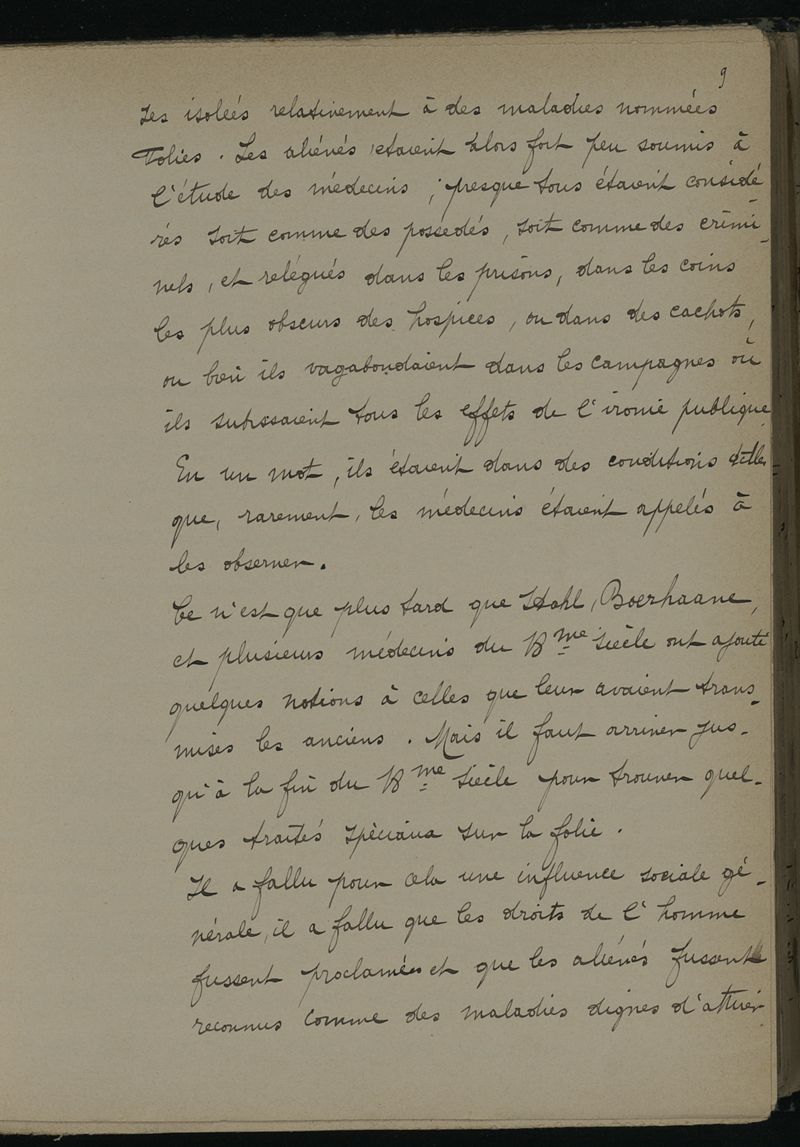 9
ses isolées relativement à des maladies nommées
Folies. Les aliénés étaient alors fort peu soumis à
l'étude des médecins ; presque tous étaient considé-
rés soit comme des possedés, soit comme des crimi-
nels, et relégués dans les prisons, dans les coins
les plus obscurs des hospices, ou dans des cachots,
ou bien ils vagabondaient dans les campagnes où
ils subissaient tous les effets de l'ironie publique.
En un mot, ils étaient dans des conditions telles
que, rarement, les médecins étaient appelés à
les observer.
Ce n'est que plus tard que Stahl, Boerhaave,
et plusieurs médecins du 18me siècle ont ajouté
quelques notions à celles que leur avaient trans-
mises les anciens. Mais il faut arriver jus-
qu'à la fin du 18me siècle pour trouver quel-
ques traités spéciaux sur la folie.
Il a fallu pour cela une influence sociale gé-
nérale, il a fallu que les droits de l'homme
fussent proclamés et que les aliénés fussent
reconnus comme des maladies dignes d'attirer